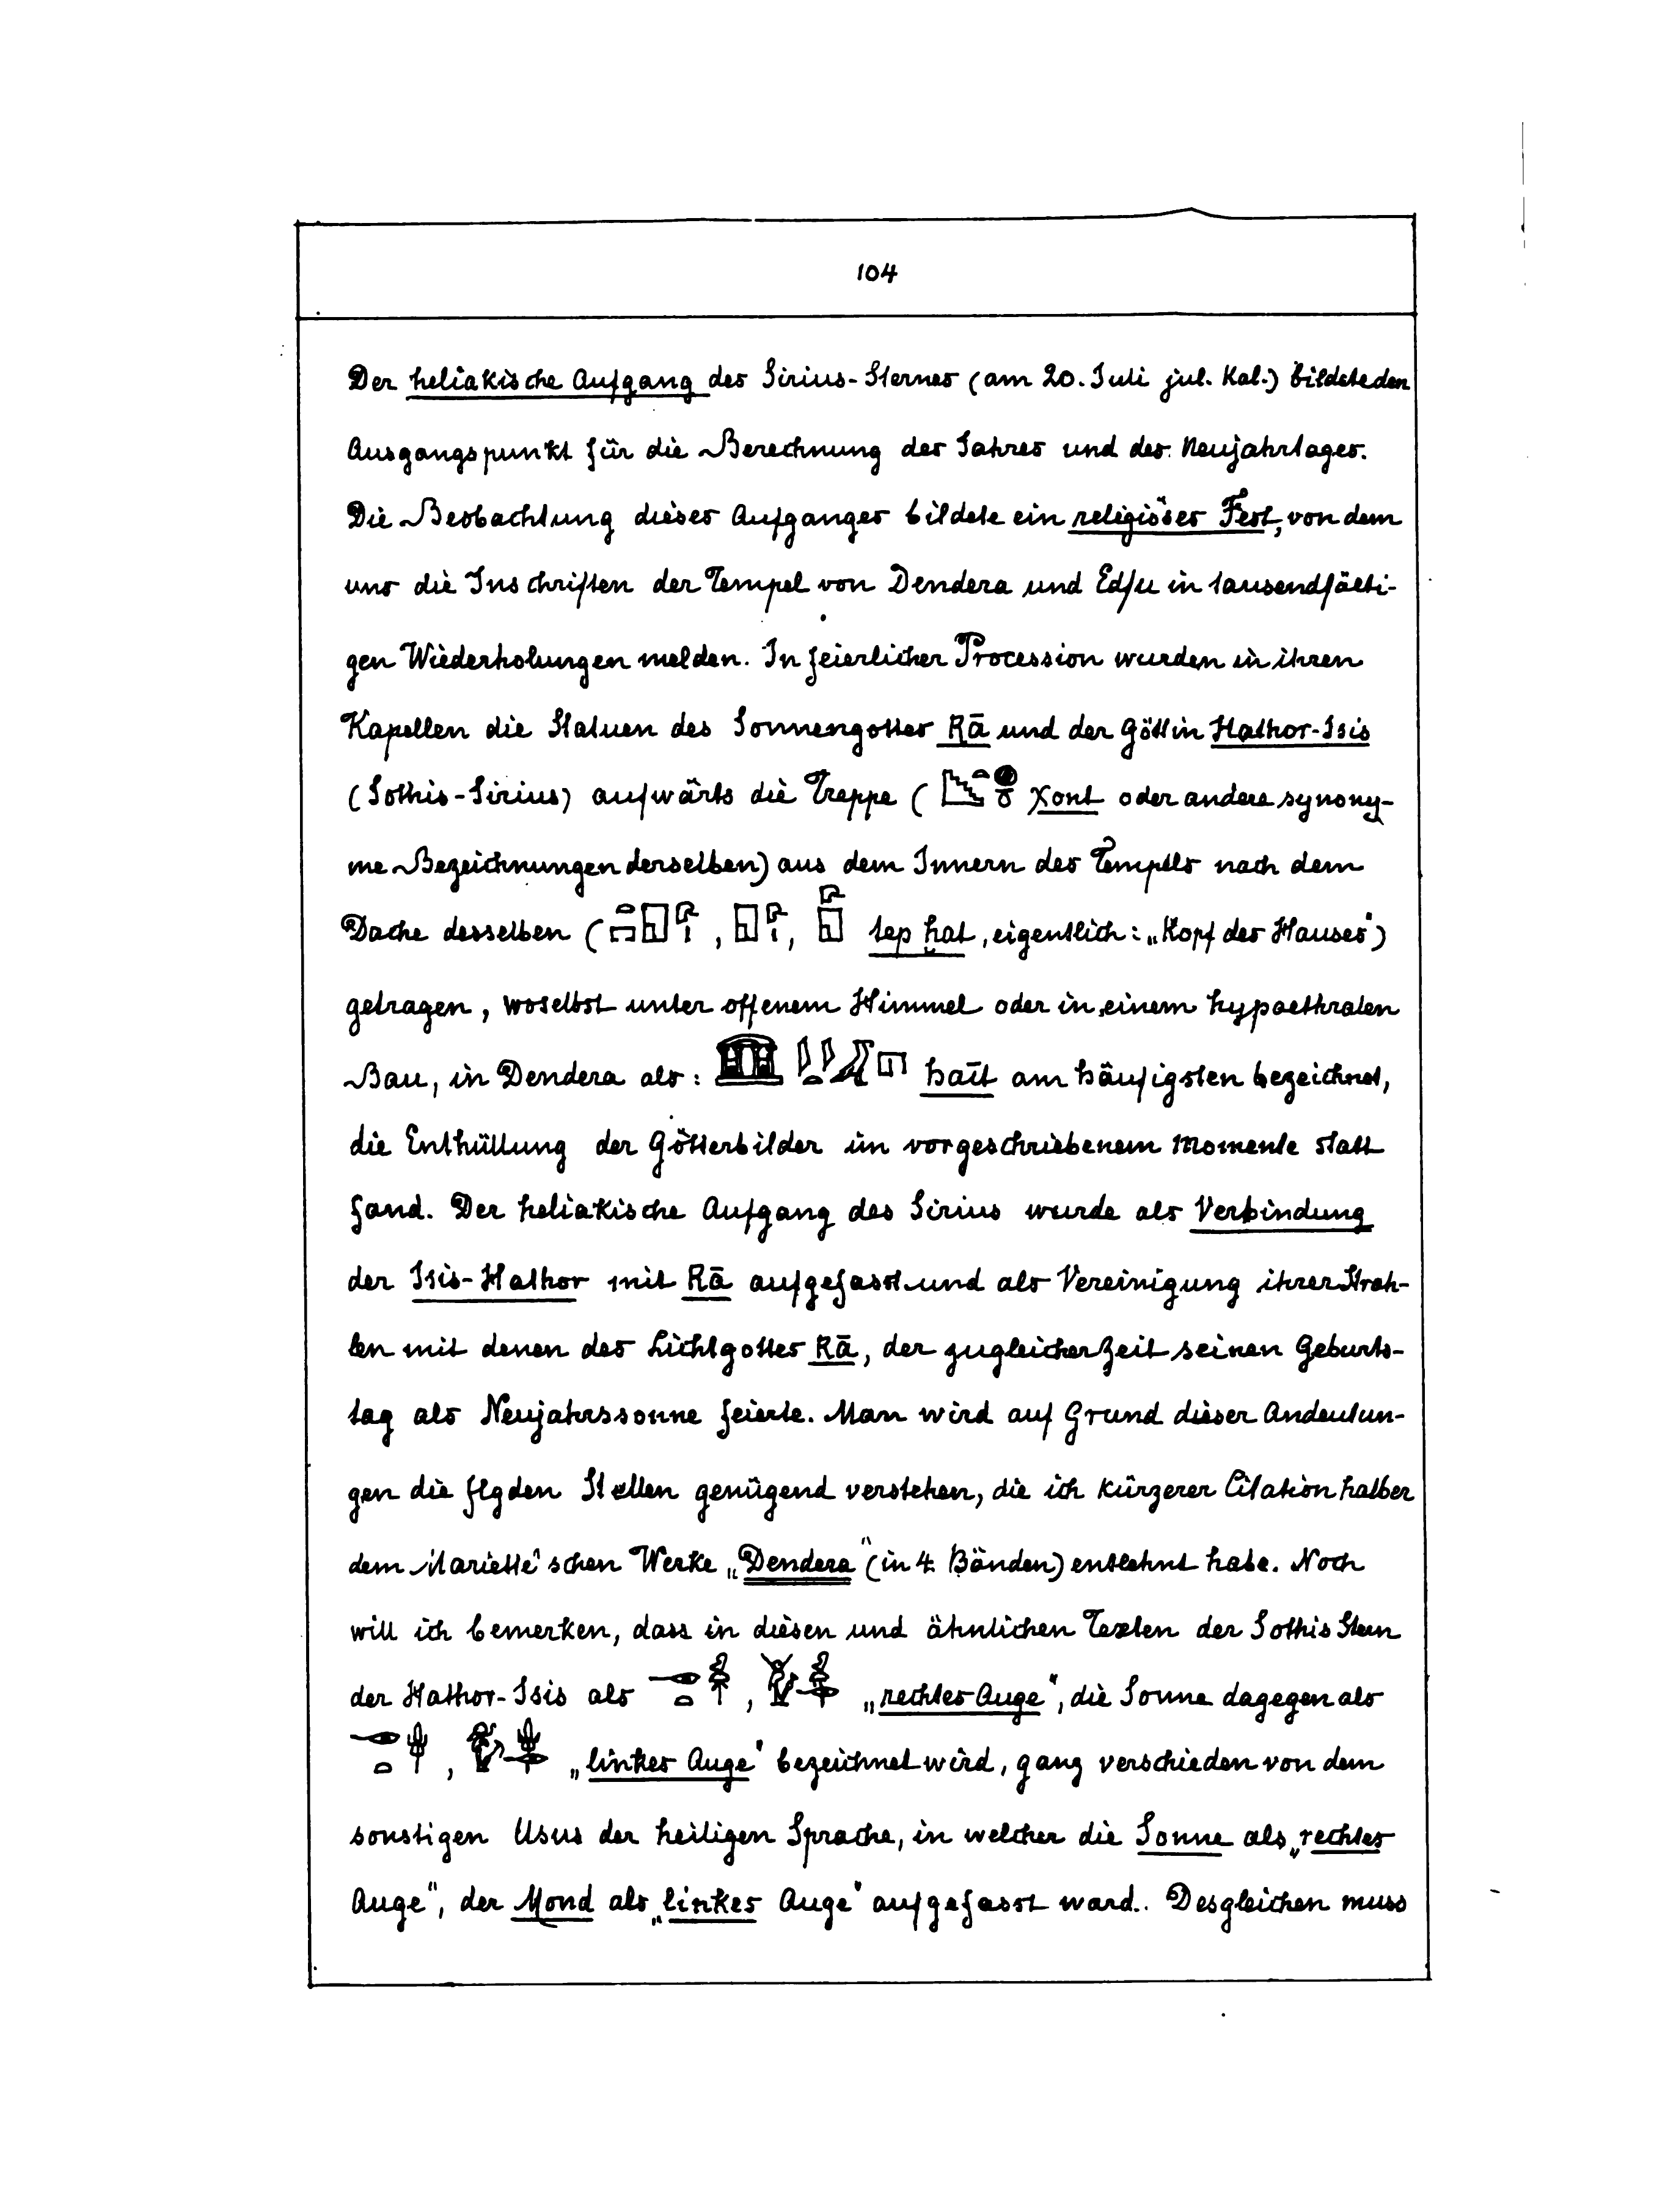 104
Der heliakische Aufgang des Sirius-Sternes (am 20. Juli jul. Kal.) bildete den
Ausgangspunkt für die Berechnung des Jahres und des Neujahrtages.
Die Beobachtung dieses Aufganges bildete ein religiöses Fest, von dem
uns die Inschriften der Tempel von Dendera und Edfu in tausendfälti-
gen Wiederholungen melden. In feierlicher Procession wurden in ihren
Kapellen die Statuen des Sonnengottes Rā und der Göttin Hathor-Isis
(Sothis-Sirius) aufwärts die Treppe ( χont oder andere synony-
me Bezeichnungen derselben) aus dem Innern des Tempels nach dem
Dache desselben ( , , tep ḥat, eigentlich: „Kopf des Hauses")
getragen, woselbst unter offenem Himmel oder in einem hypaethralen
Bau, in Dendera als: haīt am häufigsten bezeichnet,
die Enthüllung der Götterbilder im vorgeschriebenem Momente statt
fand. Der heliakische Aufgang des Sirius wurde als Verbindung
der Isis-Hathor mit Rā aufgefasst und als Vereinigung ihrer Strah-
len mit denen des Lichtgottes Rā, der zugleicher Zeit seinen Geburts-
tag als Neujahrssonne feierte. Man wird auf Grund dieser Andeutun-
gen die flgden Stellen genügend verstehen, die ich kürzerer Citation halber
dem Mariette'schen Werke „Dendera" (in 4 Bänden) entlehnt habe. Noch
will ich bemerken, dass in diesen und ähnlichen Texten der Sothis Stern
der Hathor-Isis als , „rechtes Auge", die Sonne dagegen als
, „linkes Auge" bezeichnet wird, ganz verschieden von dem
sonstigen Usus der heiligen Sprache, in welcher die Sonne als „rechtes
Auge", der Mond als „linkes Auge" aufgefasst ward. Desgleichen muss